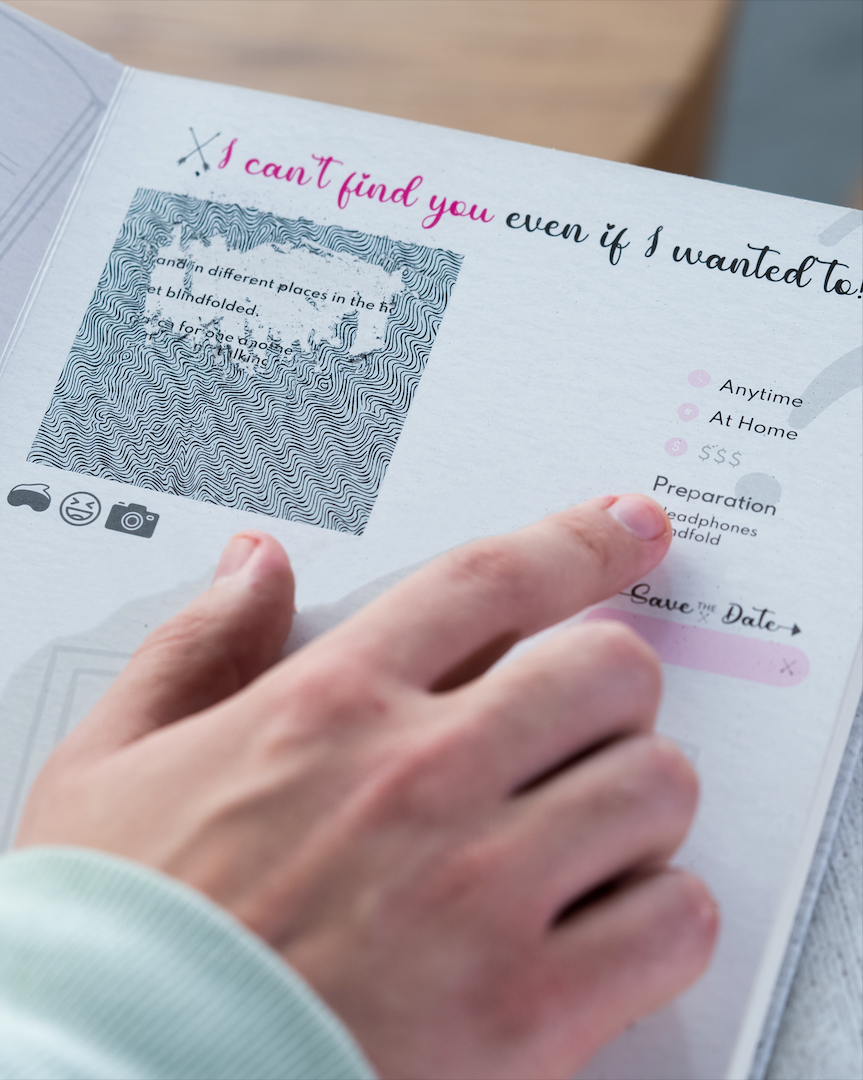 I can't find you even if I wanted to!
and in different places in the
blindfolded.
for one another
talking
Anytime
At Home
$$$
Preparation
Save THE Date